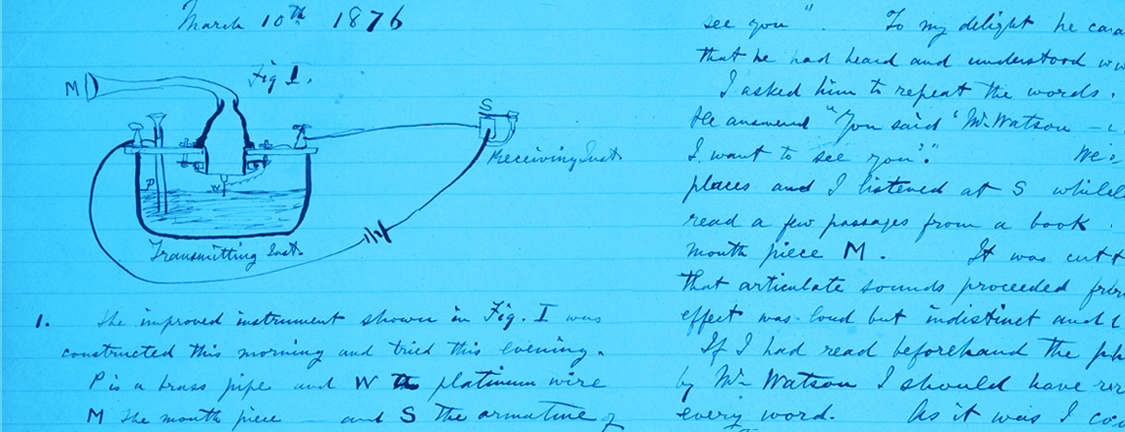 March 10th 1876
Fig 1.
M
S
Receiving Inst.
P
W
Transmitting Inst.
1. The improved instrument shown in Fig. I was
constructed this morning and tried this evening.
P is a brass pipe and W the platinum wire
M the mouth piece — and S the armature of
see you". To my delight he
that he had heard and understood
I asked him to repeat the words.
He answered "You said 'Mr. Watson —
I want to see you'."
places and I listened at S while
read a few passages from a book
mouth piece M. It was
that articulate sounds proceeded
effect was loud but indistinct and
If I had read beforehand the
by Mr. Watson I should have
every word. As it was I